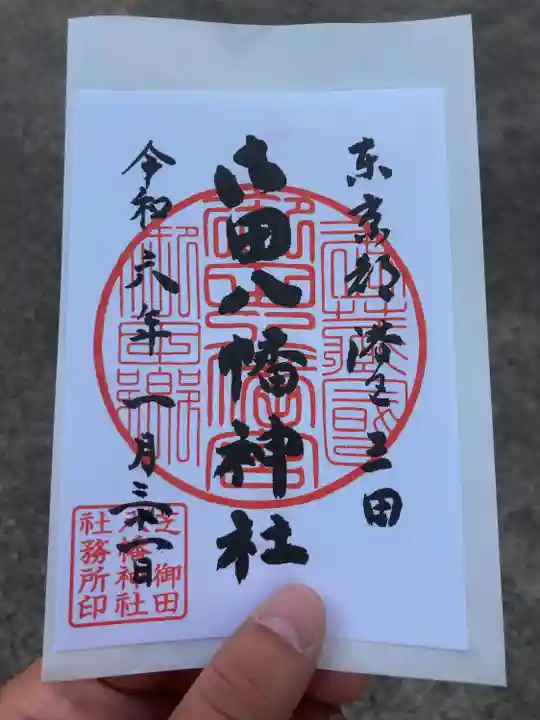 東京都港区三田
御田八幡神社
令和六年一月三十一日
芝御田
八幡神社
社務所印